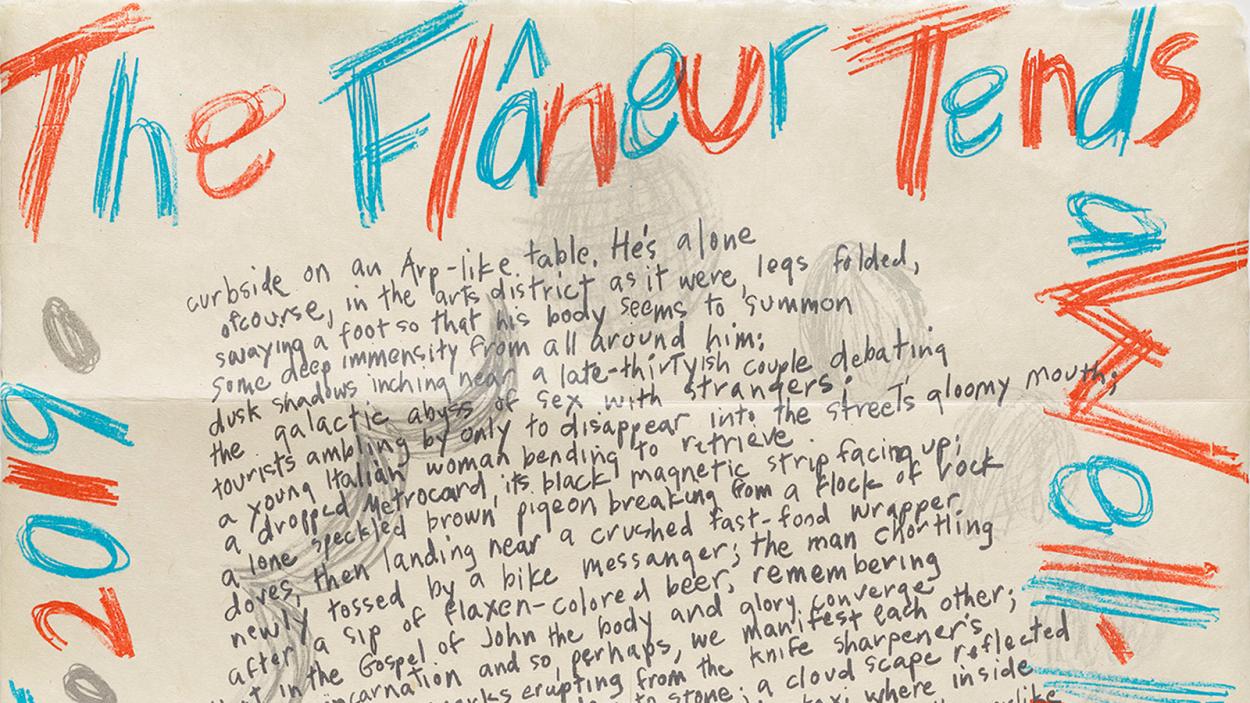 The Flâneur Tends
a Well-
2019
curbside on an Arp-like table. He's alone
ofcourse, in the arts district as it were, legs folded,
swaying a foot so that his body seems to summon
some deep immensity from all around him:
dusk shadows inching near a late-thirtyish couple debating
the galactic abyss of sex with strangers;
tourists ambling by only to disappear into the street's gloomy mouth;
a young Italian woman bending to retrieve
a dropped Metrocard, its black magnetic strip facing up;
a lone speckled brown pigeon breaking from a flock of rock
doves, then landing near a crushed fast-food wrapper
newly tossed by a bike messanger; the man chortling
after a sip of flaxen-colored beer, remembering
that in the Gospel of John the body and glory converge
incarnation and so, perhaps, we manifest each other;
erupting from the knife sharpener's
to stone; a cloud scape reflected
taxi where inside